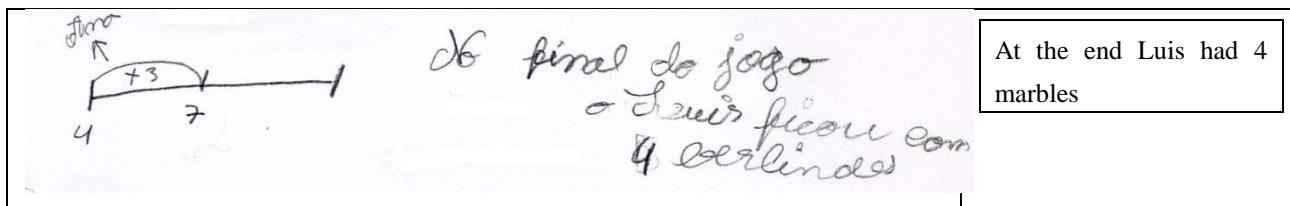 +3
4
7
No final do jogo
o Luis ficou com
4 berlindes
At the end Luis had 4
marbles